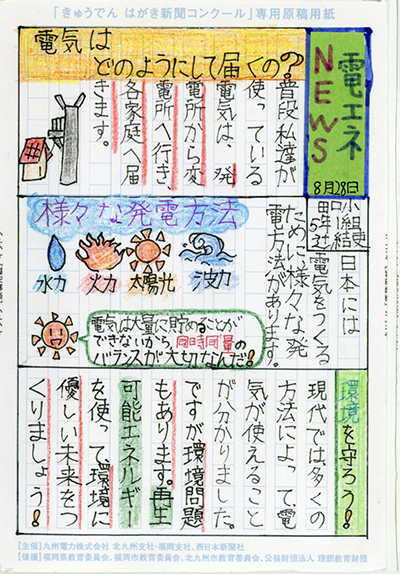 「きゅうでん はがき新聞コンクール」専用原稿用紙
電エネ
NEWS
8月28日
電気は
どのようにして届くの?
普段私達が
使っている
電気は、発
電所から変
電所へ行き
各家庭へ届
きます。
日本には
電気をつくる
ために、様々な発
電方法があります。
様々な発電方法
水力 火力 太陽光 波力
電気は大量に貯めることが
できないから、同時同量の
バランスが大切なんだ!
環境を守ろう!
現代では、多くの
方法によって、電
気が使えること
が分かりました。
ですが環境問題
もあります。再生
可能エネルギー
を使って、環境に
優しい未来をつ
くりましょう!
【主催】九州電力株式会社 北九州支社・福岡支社、西日本新聞社
【後援】福岡県教育委員会、福岡市教育委員会、北九州市教育委員会、公益財団法人 理想教育財団